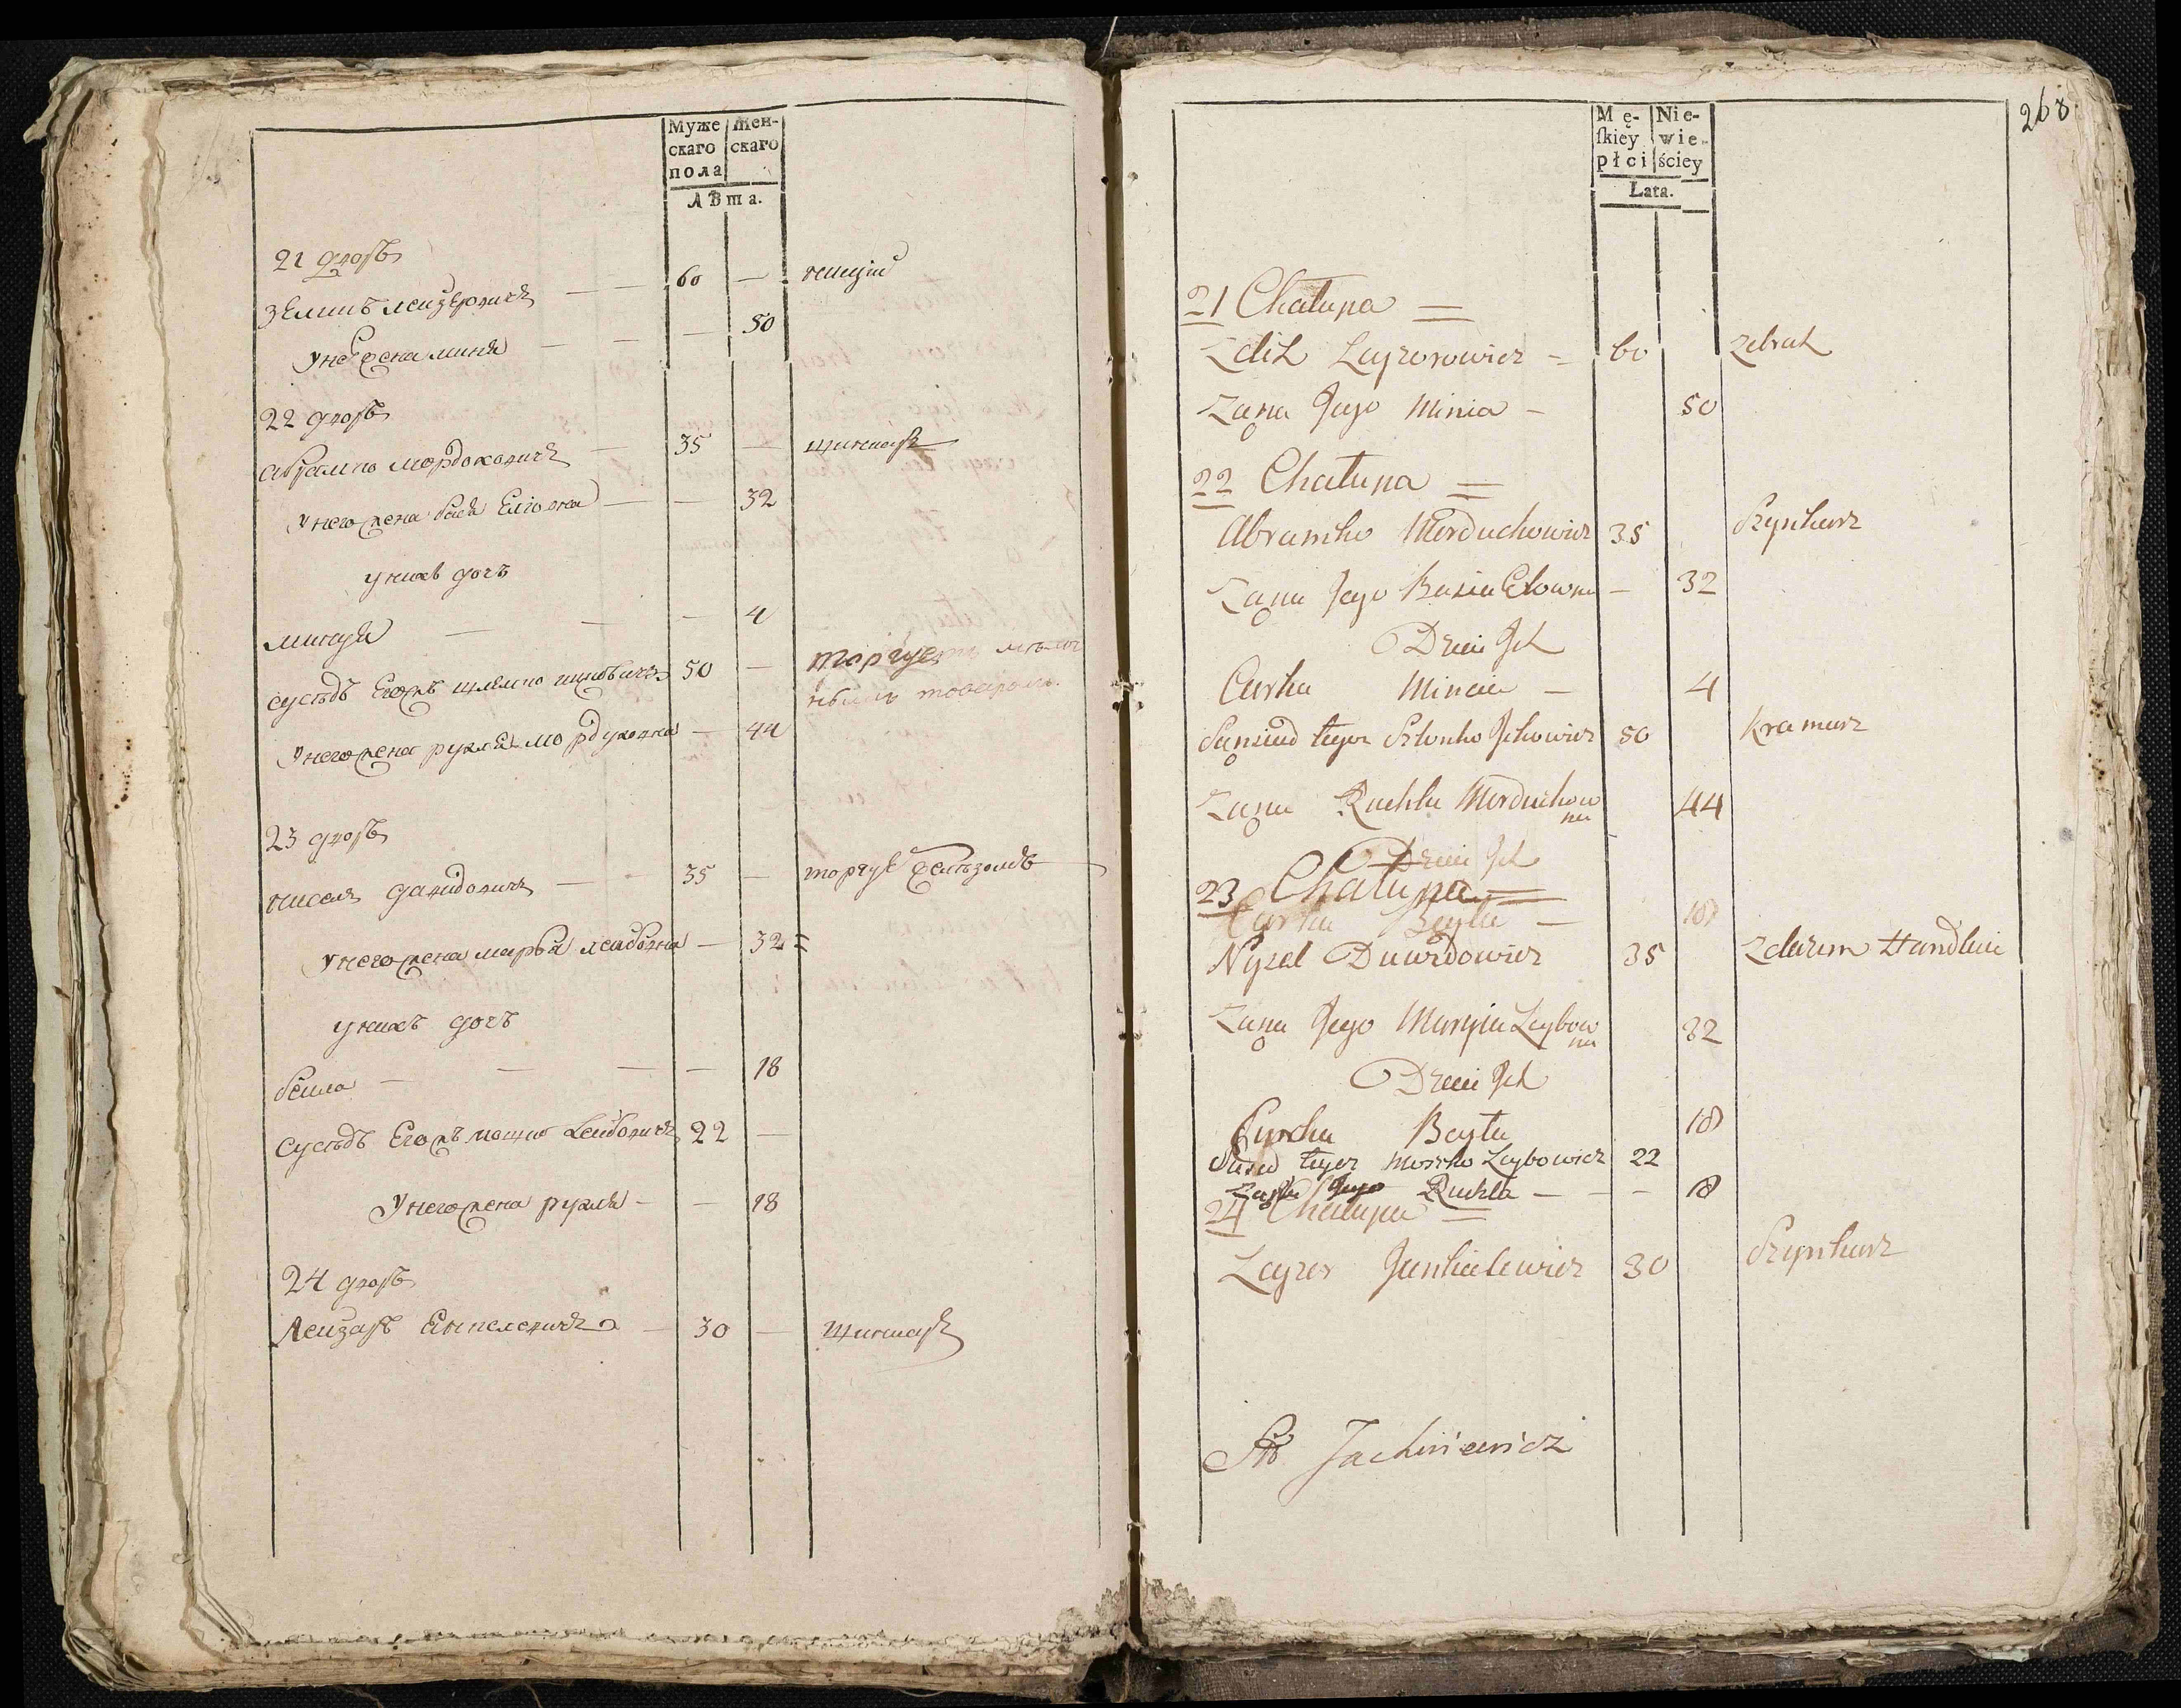 Муже
скаго
пола
Жен-
скаго
Лѣта.
21 дворъ
Зеликъ Лейзеровичъ — 60 — нищій
У него жена Миня — — 50
22 дворъ
Абрамко Мордоховичъ — 35 — шинкарь
У него жена Бася Еліовна — — 32
У нихъ дочь
Минуця — — — 4
Сусѣдъ Егожъ Шлемко Ицковичъ 50 — торгуетъ мѣлоч
нымъ товаромъ.
У него жена Рухля Мордуховна — 44
23 дворъ
Нисель Давидовичъ — 35 — торгуе желѣзомъ
У него жена Марья Лейбовна — 32
У нихъ дочь
Бейла — — — — 18
Сусѣдъ Егожъ Мошко Лейбовичъ 22 —
У него жена Рухля — — 18
24 дворъ
Лейзаръ Енкелевичъ — 30 — шинкарь
268
Mę-
ſkiey
płci
Nie-
wie-
ściey
Lata.
21 Chałupa =
Zelik Layzorowicz = 60 Zebrak
Zona Jego Minia — 50
22 Chałupa =
Abramko Morduchowicz 35 Szynkarz
Zona Jego Basia Elowna — 32
Dzieci Ich
Curka Mincia — 4
Sąsiad tegoż Szlomko Ickowicz 50 Kramarz
Zona Ruchla Morduchow
na 44
Dzieci Ich
23 Chałupa =
Curka Beyla — 18
Nysel Dawidowicz 35 Zelazem Handluie
Zona Jego Maryia Leybow
na 32
Dzieci Ich
Curka Beyla 18
Sąsiad tegoż Moszko Leybowicz 22
Zona Jego Ruchla — — — 18
24 Chałupa =
Leyzer Jankielewicz 30 Szynkarz
Jachiniewicz